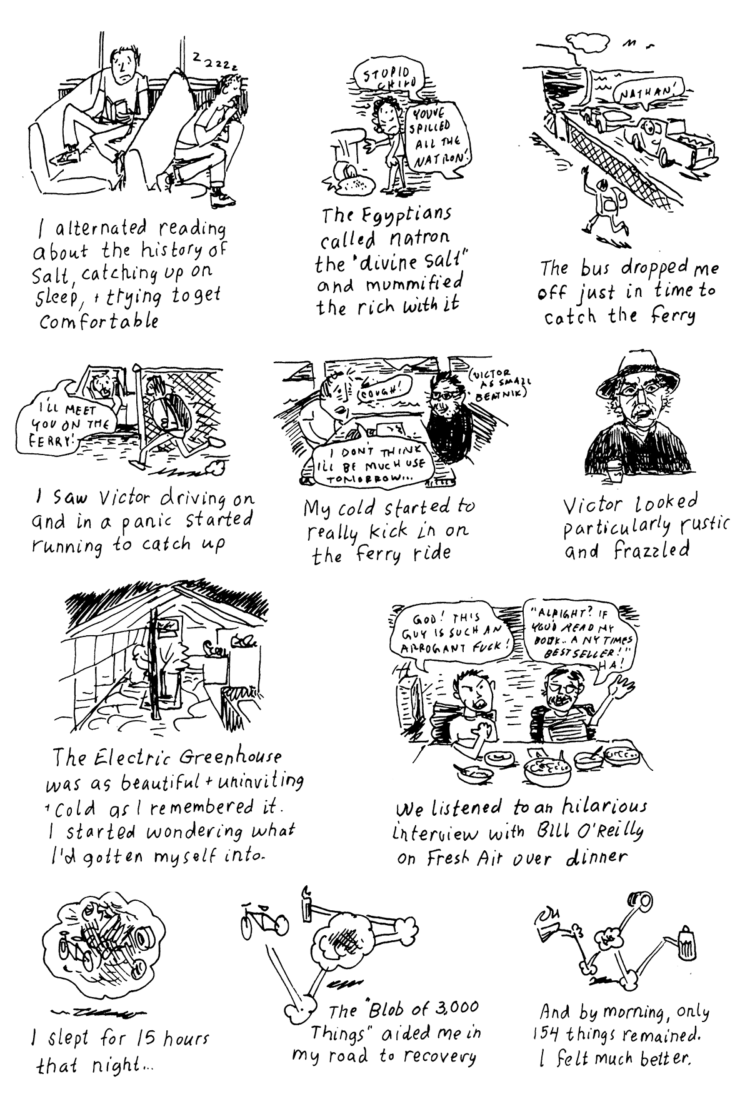 z zzzz
I alternated reading
about the history of
Salt, catching up on
Sleep, + trying to get
Comfortable
STUPID
CHILD
YOU'VE
SPILLED
ALL THE
NATRON!
The Egyptians
called natron
the "divine salt"
and mummified
the rich with it
NATHAN!
The bus dropped me
off just in time to
catch the ferry
I'LL MEET
YOU ON THE
FERRY!
I saw Victor driving on
and in a panic started
running to catch up
COUGH!
(VICTOR
AS SMALL
BEATNIK)
I DON'T THINK
I'LL BE MUCH USE
TOMORROW...
My cold started to
really kick in on
the ferry ride
Victor looked
particularly rustic
and frazzled
The Electric Greenhouse
was as beautiful + uninviting
+ Cold as I remembered it.
I started wondering what
I'd gotten myself into.
GOD! THIS
GUY IS SUCH AN
ARROGANT FUCK!
"ALRIGHT? IF
YOU'D READ MY
BOOK.. A NY TIMES
BEST SELLER!"
HA!
We listened to an hilarious
interview with Bill O'Reilly
on Fresh Air over dinner
I slept for 15 hours
that night...
The "Blob of 3,000
Things" aided me in
my road to recovery
And by morning, only
154 things remained.
I felt much better.